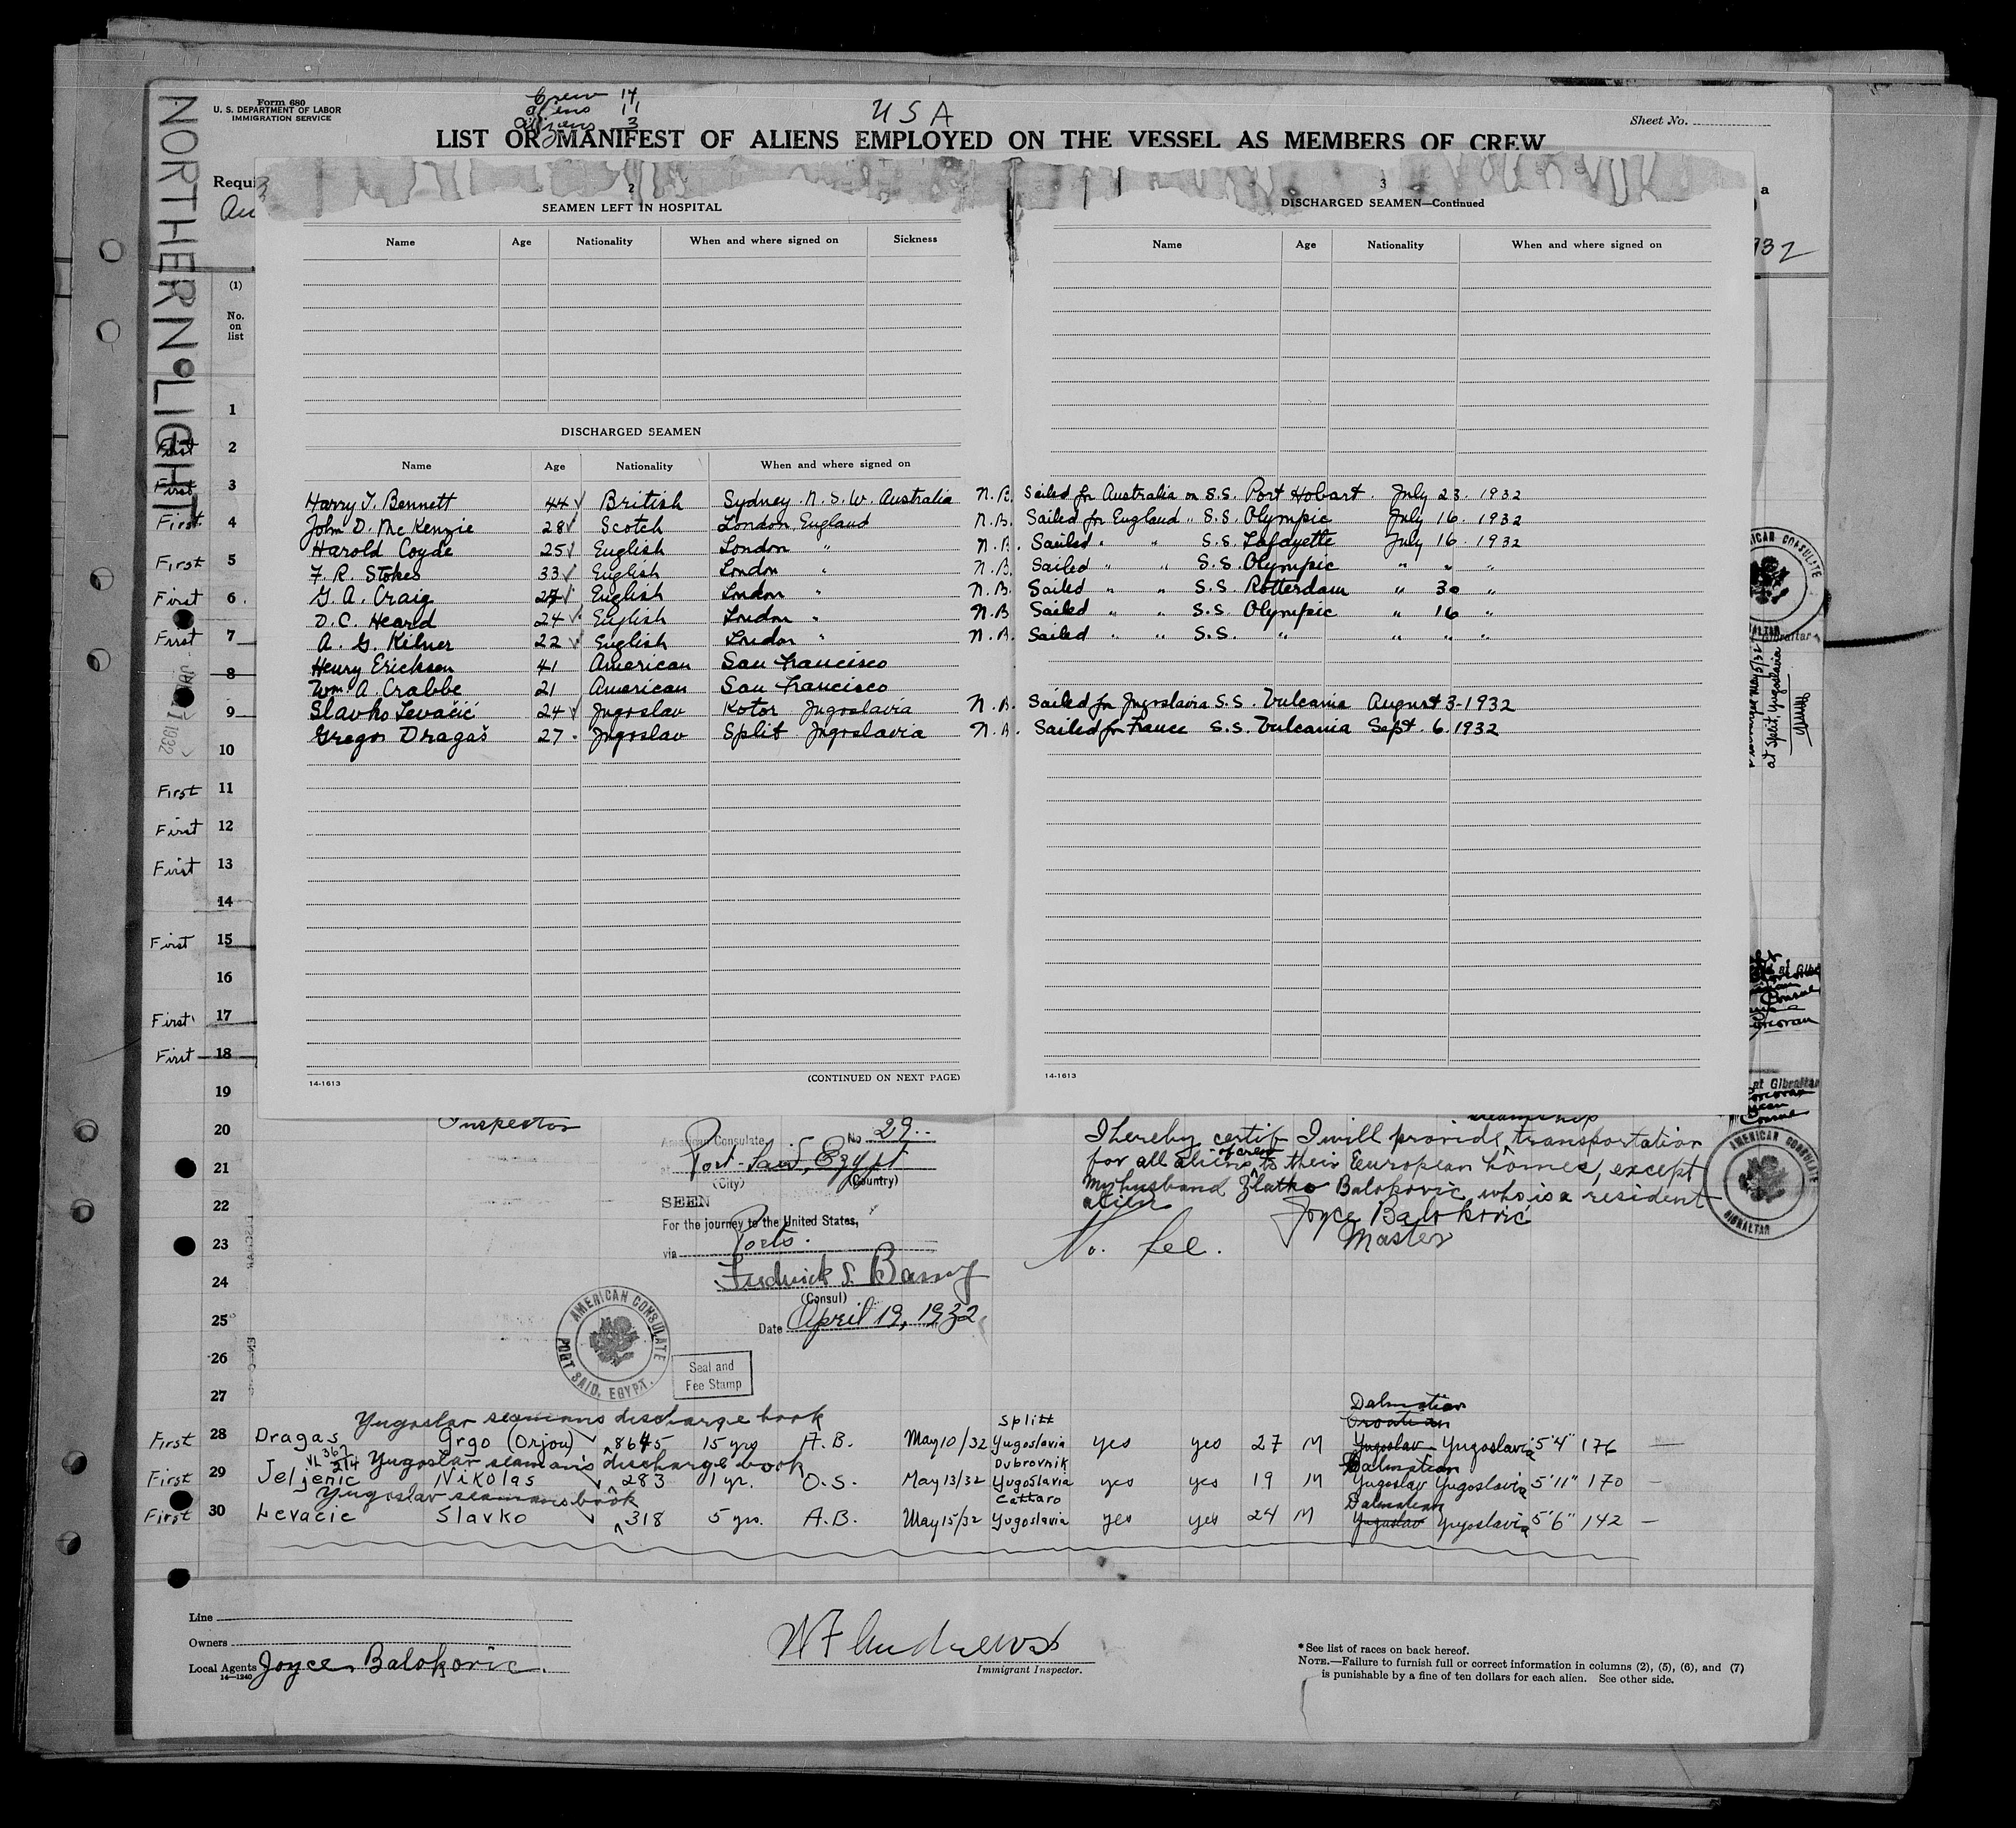 Form 680
U. S. DEPARTMENT OF LABOR
IMMIGRATION SERVICE
Crew 14
Aliens 11
Citizens 3
USA
Sheet No.
LIST OR MANIFEST OF ALIENS EMPLOYED ON THE VESSEL AS MEMBERS OF CREW
NORTHERN LIGHT
Requi
a
932
(1)
No. on list
2
SEAMEN LEFT IN HOSPITAL
Name Age Nationality When and where signed on Sickness
3
DISCHARGED SEAMEN—Continued
Name Age Nationality When and where signed on
DISCHARGED SEAMEN
Name Age Nationality When and where signed on
Harry T. Bennett 44 ✓ British Sydney N.S.W. Australia N.B. Sailed for Australia on S.S. Port Hobart. July 23. 1932
John D. McKenzie 28 ✓ Scotch London England N.B. Sailed for England " S.S. Olympic July 16. 1932
Harold Coyde 25 ✓ English London " N.B. Sailed " " S.S. Lafayette July 16. 1932
F. R. Stokes 33 ✓ English London " N.B. Sailed " " S.S. Olympic " " "
G. A. Craig 27 ✓ English London " N.B. Sailed " " S.S. Rotterdam " 30 "
D. C. Heard 24 ✓ English London " N.B. Sailed " " S.S. Olympic " 16 "
A. G. Kilner 22 ✓ English London " N.B. Sailed " " S.S. " " " "
Henry Erickson 41 American San Francisco
Wm. A Crabbe 21 American San Francisco
Slavko Levačić 24 ✓ Jugoslav Kotor Jugoslavia N.B. Sailed for Jugoslavia S.S. Vulcania August 3-1932
Gregor Dragaš 27 Jugoslav Split Jugoslavia N.B. Sailed for France S.S. Vulcania Sept. 6. 1932
14-1613
(CONTINUED ON NEXT PAGE)
14-1613
1
First 2
First 3
First 4
First 5
First 6
First 7
8
9
10
First 11
First 12
First 13
14
First 15
16
First 17
First 18
19
20
21
22
23
24
25
26
27
Gibraltar
at Split, Yugoslavia
at Gibraltar
Consul
Inspector
American Consulate, No. 29
at Port-Said, Egypt
(City) (Country)
SEEN
For the journey to the United States,
via Ports.
(Consul)
Date April 19, 1932
AMERICAN CONSULATE
PORT SAID, EGYPT.
Seal and
Fee Stamp
steamship
I hereby certify I will provide ^ transportation
for all aliens of crew to their European homes, except
my husband Zlatko Balokovic who is a resident
alien
Joyce Baloković
Master
No. fee.
AMERICAN CONSULATE
GIBRALTAR
Yugoslav seamans discharge book
First 28 Dragas Grgo (Orjou) ✓ 8645 15 yrs A.B. May 10/32 Splitt Yugoslavia yes yes 27 M Dalmatian Croatian Yugoslav Yugoslavia 5'4" 176 —
Yugoslav seaman's discharge book
First 29 Jeljenic Nikolas ✓ 283 1 yr. O.S. May 13/32 Dubrovnik Yugoslavia yes yes 19 M Dalmatian Yugoslav Yugoslavia 5'11" 170 —
Yugoslav seamans book
First 30 Levacic Slavko ✓ 318 5 yrs. A.B. May 15/32 Cattaro Yugoslavia yes yes 24 M Dalmatian Yugoslav Yugoslavia 5'6" 142 —
Line
Owners
Local Agents Joyce Balokovic.
14—1240
Immigrant Inspector.
*See list of races on back hereof.
NOTE.—Failure to furnish full or correct information in columns (2), (5), (6), and (7)
is punishable by a fine of ten dollars for each alien. See other side.